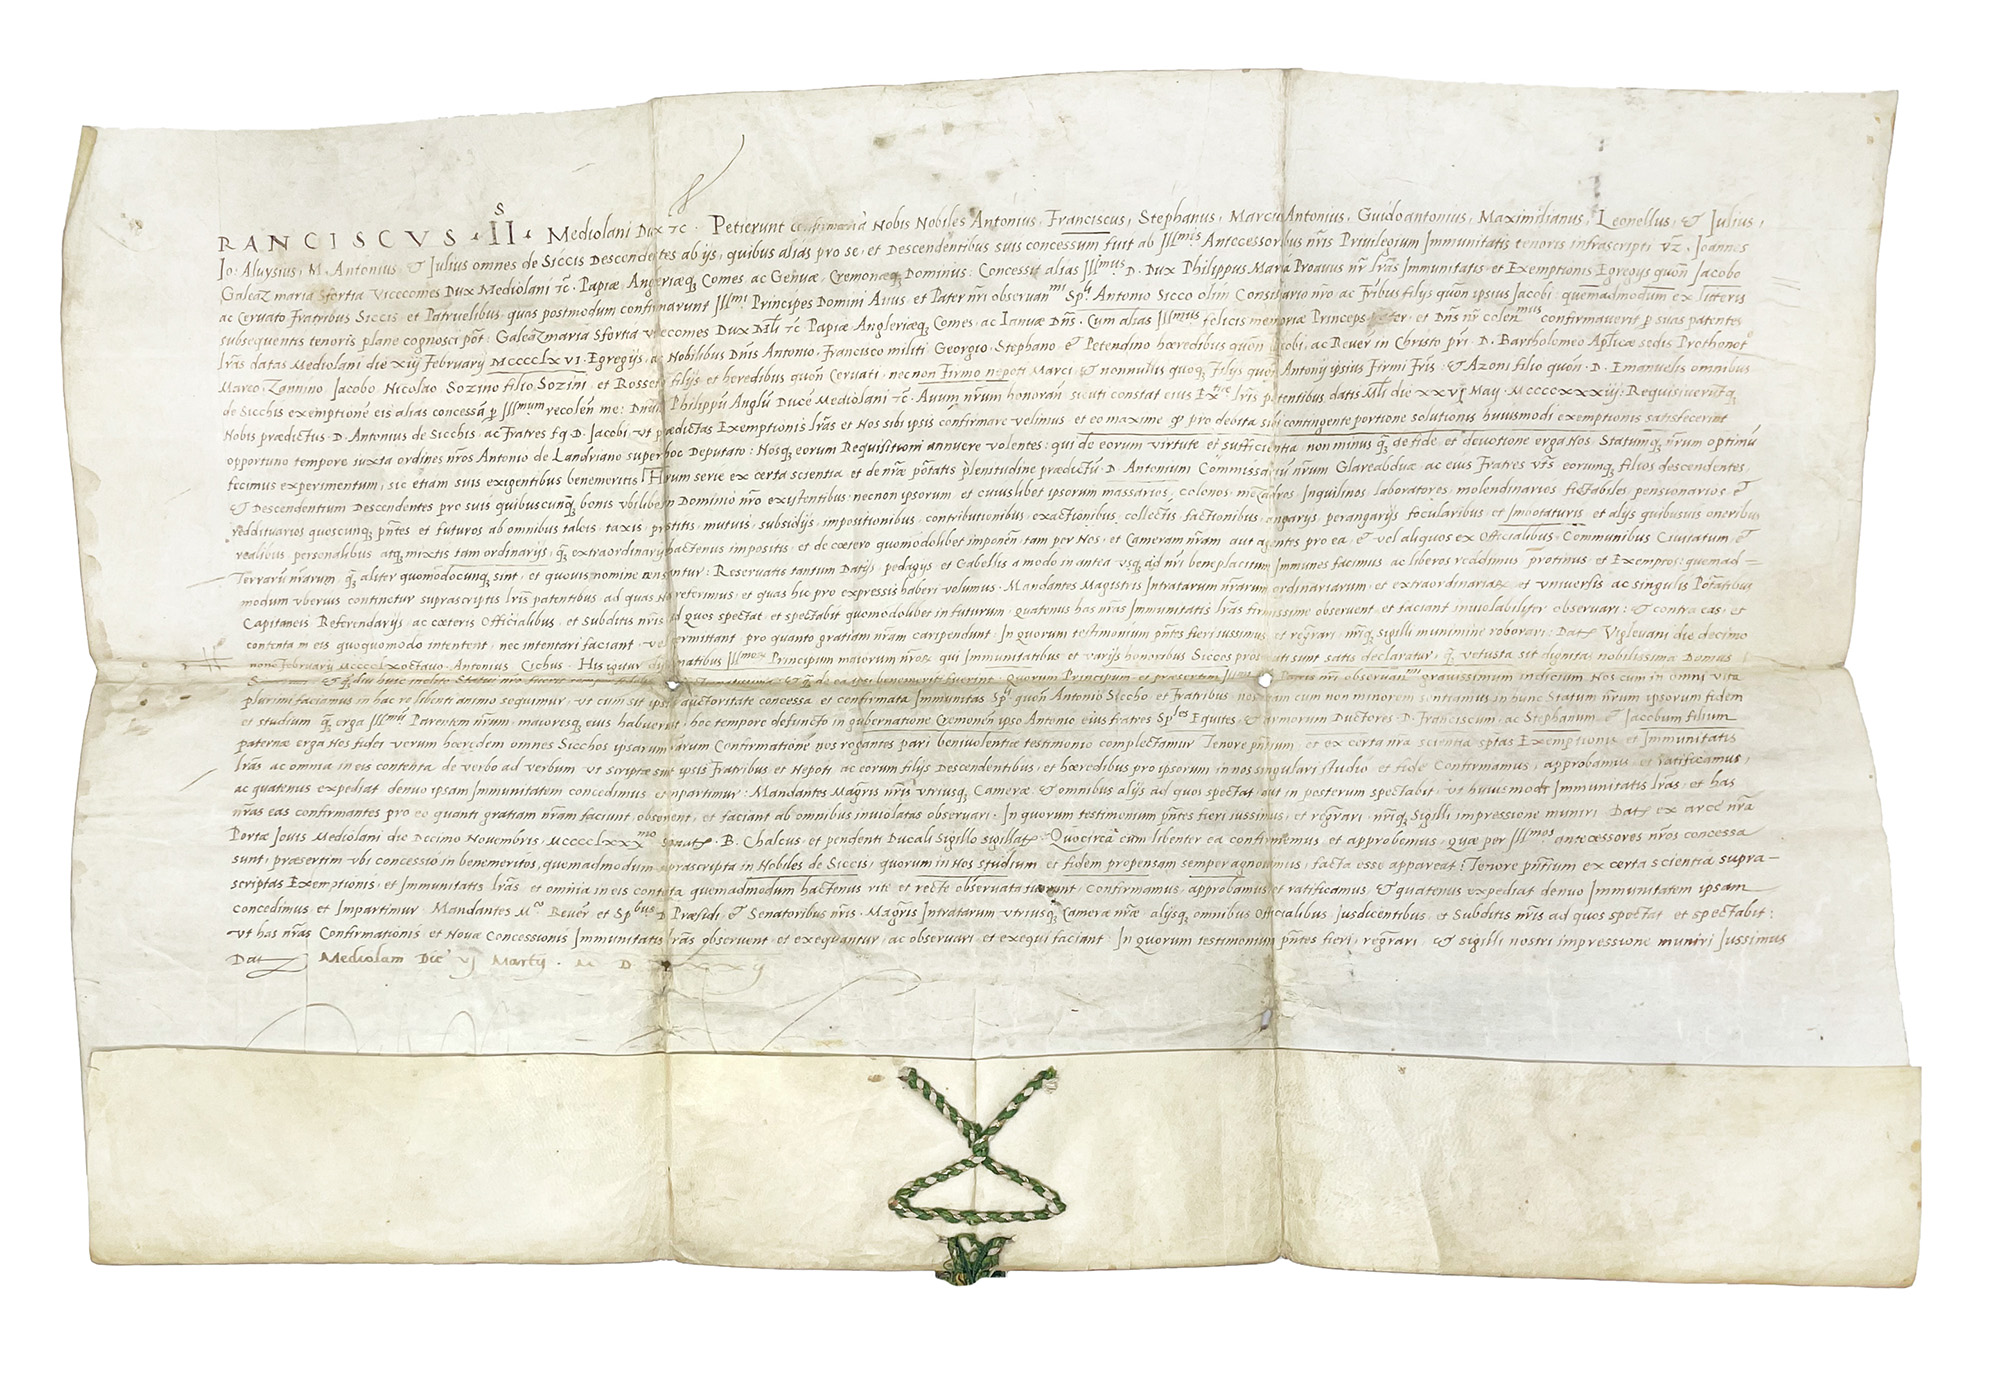 RANCISCVS · II^S · Mediolani Dux &c · Petierunt confirmariã Nobis Nobiles Antonius, Franciscus, Stephanus, MarcusAntonius, Guidoantonius, Maximilianus, Leonellus, & Julius,
Io: Aluysius, M. Antonius, & Julius omnes de Siccis Descendentes ab ijs, quibus alias pro se, et Descendentibus suis concessum fuit ab Illmis Antecessoribus nr̃is Priuilegium Immunitatis tenoris infrascripti vz. Joannes
Galeaz maria Sfortia Vicecomes Dux Mediolani &c. Papiæ, Angeriæq; Comes ac Genuæ, Cremonæq; Dominus: Concessit alias Illmus D. Dux Philippus Maria Proauus nr̃ lr̃as Immunitatis et Exemptionis Egregijs quon̄ Jacobo
ac Ceruato Fratribus Siccis et Patruelibus, quas postmodum confirmarunt Illmi Principes Domini Auus et Pater nr̃i obseruan^mi Sp^li Antonio Sicco olim Consiliario nr̃o ac Fr̃ibus filijs quon̄ ipsius Jacobi: quemadmodum ex litteris
subsequentis tenoris plane cognosci pōt: Galeazmaria Sfortia vicecomes Dux Mli &c Papiæ Angleriæq; Comes, ac Ianuæ Dñs. Cum alias Illmus felicis memoriæ Princeps et Dñs nr̃ colen^mus confirmauerit p suas patentes
lr̃as datas Mediolani die xiij February MCCCCLXVI. Egregijs, ac Nobilibus Dñis Antonio, Francisco militi Georgio, Stephano, & Petendino hœredibus quon̄ Jacobi, ac Reuer in Christo pr̃i D. Bartholomeo Aplicæ sedis Prothonot^o
Marco, Zannino, Jacobo Nicolao Sozino filio Sozini, et Rossero filijs et heredibus quon̄ Ceruati, necnon Firmo nepoti Marci & nonnullis quoq; Filijs quon̄ Antonij ipsius Firmi Fr̃is, & Azoni filio quon̄ D. Emanuelis omnibus
de Sicchis exemptionē eis alias concessā p Illmum recolen̄ me: Dnūm Philippū Anglū Ducē Mediolani &c. Auum nr̃um honoran̄ sicuti constat eius Ex^tiæ lr̃is patentibus datis Mli die xxvj May MCCCCXXXiij: Requisiueruntq;
Nobis prædictus D. Antonius de Sicchis, ac Fratres fq. D. Jacobi, ut prædictas Exemptionis lr̃as et Nos sibi ipsis confirmare velimus et eo maxime qp pro debita sibi contingente portione solutionis huiusmodi exemptionis satisfecerint
opportuno tempore iuxta ordines nr̃os Antonio de Landriano super hoc Deputato: Nosq; eorum Requisitioni annuere volentes: qui de eorum virtute et sufficientia, non minus q̃ de fide et deuotione erga Nos, Statumq; nr̃um optimū
fecimus experimentum, sic etiam suis exigentibus benemeritis Harum serie ex certa scientia et de nr̃æ potatis plenitudine prædictū D. Antonium Commissariū nr̃um Glareabduæ ac eius Fratres vts eorumq; filios descendentes,
& Descendentium Descendentes pro suis quibuscunq; bonis vbilibet in Dominio nr̃o existentibus necnon ipsorum et cuiuslibet ipsorum massarios, colonos, mezadros, Inquilinos laboratores, molendinarios fictabiles, pensionarios &
reddituarios quoscunq; pñtes et futuros ab omnibus taleis taxis, prestitis, mutuis, subsidijs, impositionibus, contributionibus, exactionibus, collectis, factionibus, angarijs, perangarijs, focularibus et Imbotaturis, et alijs quibusuis oneribus
realibus, personalibus atq; mixtis tam ordinarijs, q̃ extraordinarijs hactenus impositis et de cœtero quomodolibet imponen̄ tam per Nos, et Cameram nr̃am aut agentes pro ea, & vel aliquos ex Officialibus, Communibus Ciuitatum, &
Terrarū nr̃arum q̃ aliter quomodocunq; sint, et quouis nomine censeantur: Reseruatis tantum Datijs, pedagijs et Gabellis amodo in antea vsq; ad nr̃i beneplacitum Immunes facimus ac liberos reddimus protinus et Exemptos: quemad=
modum vberius continetur suprascriptis lr̃is patentibus, ad quas Nos referimus, et quas hic pro expressis haberi volumus. Mandantes Magistris Intratarum nr̃arum ordinariarum, et extraordinariar; et vniuersis ac singulis Potatibus
Capitaneis Referendarijs, ac cœteris Officialibus, et Subditis nr̃is ad quos spectat et spectabit quomodolibet in futurum, quatenus has nr̃as Immunitatis lr̃as firmissime obseruent et faciant inuiolabiliter obseruari: & contra eas, et
contenta in eis quoquomodo intentent, nec intentari faciant vel permittant pro quanto gratiam nr̃am caripendunt: In quorum testimonium pñtes fieri iussimus et regr̃ari nr̃iq; sigilli munimine roborari: Dat; Viglevani die decimo
nono February MCCCCLXoctauo. Antonius Cichus. His igitur Illmor; Principum maiorum nr̃or; qui Immunitatibus et varijs honoribus Siccos prosecuti sunt satis declaratur, q̃ vetusta sit dignitas nobilissima Domus
& q̃ diu huic inclito Statui nr̃o & q̃ de ea ipsi benemerit fuerint: Quorum Principum et præsertim Illmi Patris nr̃i obseruan^mi grauissimum indicium Nos cum in omni vita
plurimi faciamus in hac re libenti animo sequimur, vt cum sit ipsorum auctoritate concessa et confirmata Immunitas Sp^li quon̄ Antonio Seccho, et Fratribus nos etiam cum non minorem sentiamus in hunc Statum nr̃um ipsorum fidem
et studium q̃ erga Illmū Parentem nr̃um, maioresq; eius habuerunt, hoc tempore defuncto in gubernatione Cremonen̄ ipso Antonio eius fratres Sp^les Equites, & Armorum Ductores D. Franciscum, ac Stephanum & Jacobum filium
paternæ erga Nos fidei verum hœredem omnes Sicchos ipsarum lr̃arum Confirmationē nos rogantes pari beniuolentiæ testimonio complectamur Tenore pñtium, et ex certa nr̃a scientia sptas Exemptionis et Immunitatis
lr̃as ac omnia in eis contenta de verbo ad verbum vt scriptæ sunt ipsis Fratribus et Nepoti ac eorum filijs Descendentibus, et hœredibus pro ipsorum in nos singulari studio et fide Confirmamus, approbamus et ratificamus,
ac quatenus expediat denuo ipsam Immunitatem concedimus et impartimur: Mandantes Magr̃is nr̃is vtriusq; Cameræ, & omnibus alijs ad quos spectat aut in posterum spectabit, vt huiusmodi Immunitatis lr̃as, et has
nr̃as eas confirmantes pro eo quanti gratiam nr̃am faciunt obseruent, et faciant ab omnibus inuiolatas obseruari. In quorum testimonium pñtes fieri iussimus, et regr̃ari nr̃iq; Sigilli impressione muniri Dat; ex arce nr̃a
Portæ Jouis Mediolani die Decimo Nouembris, MCCCCLXXX^mo Signat; B. Chalcus, et pendenti Ducali Sigillo sigillat; Quocirca cum libenter ea confirmemus et approbemus, quæ per Illmos antecessores nr̃os concessa
sunt, præsertim vbi concessio in benemeritos, quemadmodum suprascripta in Nobiles de Siccis, quorum in Nos studium et fidem propensam semper agnouimus, facta esse appareat: Tenore pñtium ex certa scientia supra-
scriptas Exemptionis, et Immunitatis lr̃as et omnia in eis contenta quemadmodum hactenus rite et recte obseruata fuerunt, Confirmamus, approbamus et ratificamus, & quatenus expediat denuo Immunitatem ipsam
concedimus et Impartimur Mandantes M^co Reuer et Sp^bus D Præsidi, & Senatoribus nr̃is, Magr̃is Intratarum vtriusq; Cameræ nr̃æ, alijsq; omnibus Officialibus Jusdicentibus, et Subditis nr̃is ad quos spectat et spectabit:
vt has nr̃as Confirmationis et Nouæ Concessionis Immunitatis lr̃as obseruent et exequantur, ac obseruari et exequi faciant. In quorum testimonium pñtes fieri, regr̃ari & sigilli nostri impressione muniri Jussimus
Dat; Mediolani Die vj Martij . M D XXXij